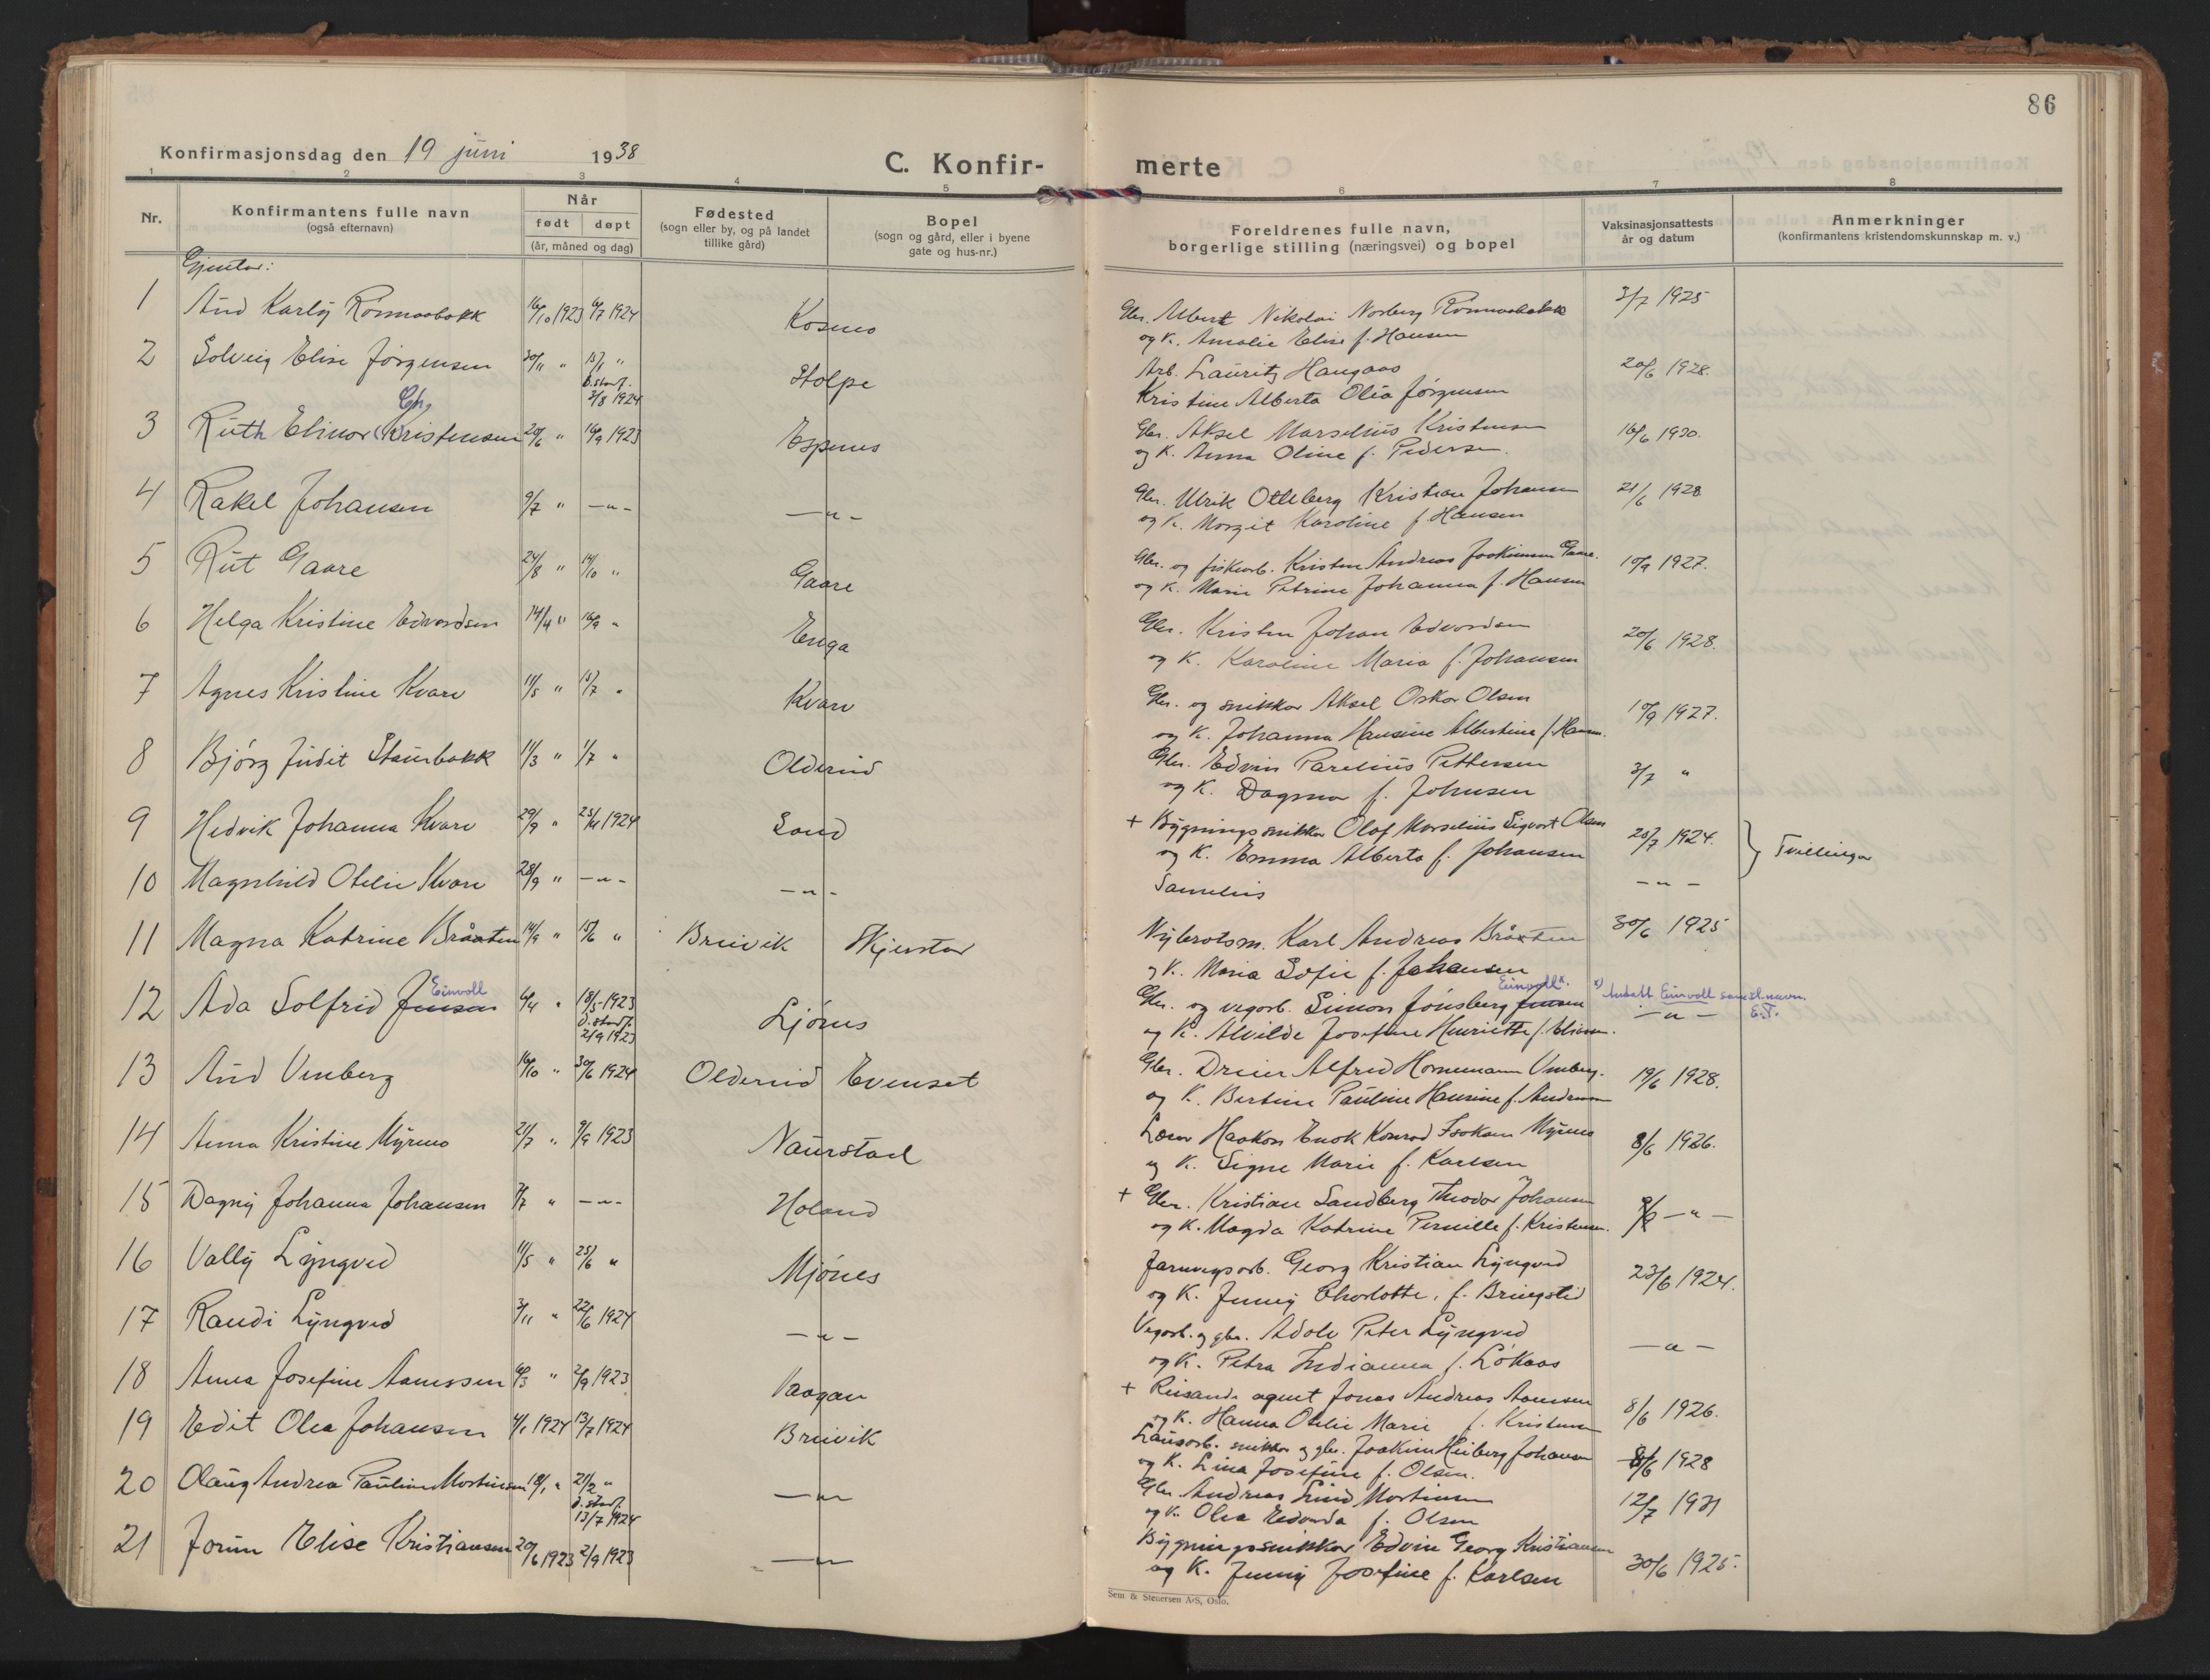 86
Konfirmasjonsdag den 19 juni 1938
C. Konfir- merte
1 2 3 4 5 6 7 8
Nr.
Konfirmantens fulle navn
(også efternavn)
Når
født døpt
(år, måned og dag)
Fødested
(sogn eller by, og på landet
tillike gård)
Bopel
(sogn og gård, eller i byene
gate og hus-nr.)
Foreldrenes fulle navn,
borgerlige stilling (næringsvei) og bopel
Vaksinasjonsattests
år og datum
Anmerkninger
(konfirmantens kristendomskunnskap m. v.)
Gjentor:
1 Aud Karly Rønnaabakk 16/10 1923 6/7 1924 Kosmo Gbr. Albert Nikolai Norberg Rønnaabakk 3/7 1925
og K. Amalie Elise f. Hansen
2 Solveig Elise Jørgensen 30/11 " 15/1 " Stolpe Arb. Lauritz Haugaas 20/6 1928.
d. stadf. 3/8 1924 Kristine Alberta Olea Jørgensen
Chr
3 Ruth Elinor (Kristensen 20/6 " 16/9 1923 Espenes Gbr. Aksel Marselius Kristensen 16/6 1930.
og K. Anna Oline f. Pedersen.
4 Rakel Johansen 9/7 " — " — — " — Gbr. Ulrik Otteberg Kristian Johansen 21/6 1928
og K. Margit Karoline f. Hansen
5 Rut Gaare 24/8 " 14/10 " Gaare Gbr. og fiskearb. Kristen Andreas Joakimsen Gaare. 10/9 1927.
og K. Marie Petrine Johanna f. Hansen
6 Helga Kristine Edvardsen 14/4 " 16/9 " Enga Gbr. Kristen Johan Edvardsen 20/6 1928.
og K. Karoline Maria f. Johansen
7 Agnes Kristine Kvarv 11/5 " 15/7 " Kvarv Gbr. og snikkar Aksel Oskar Olsen 10/9 1927.
og K. Johanna Hansine Albertine f. Hansen.
8 Bjørg Judit Staurbakk 11/3 " 1/7 " Oldereid Gbr. Edvin Parelius Pettersen 3/7 "
og K. Dagmar f. Johnsen
9 Hedvik Johanna Kvarv 29/9 " 1924 Sand + Bygningssnikkar Olaf Marselius Sigvart Olsen 20/7 1924. } Tvillingar
og K. Emma Alberta f. Johansen
10 Magnhild Otelie Kvarv 28/9 " — " — — " — Sameleis — " —
11 Magna Katrine Bråaten 14/9 " 15/6 " Breivik Skjerstad Nybrotsm. Karl Andreas Bråaten 30/6 1925
og K. Maria Sofie f. Johansen
Einvoll
12 Ada Solfrid Jensen 6/4 " 18/5 1923 Ljønes Gbr. og vegarb. Simon Jønsberg Jensen Einvoll x. — " —
d. stadf. 2/9 1923 og K. Alvilde Josefine Henriette f.
x) Antatt Einvoll som sl.navn. E.T.
13 Aud Venberg 16/10 " 30/6 1924 Oldereid Evenset Gbr. Dreier Alfred Hornemann Venberg. 19/6 1928.
og K. Bertine Pauline Hansine f. Andersen
14 Anna Kristine Myrmo 21/7 " 9/9 1923 Naurstad Lærar Haakon Enok Konrad Isaksen Myrmo 8/6 1926.
og K. Signe Marie f. Karlsen
15 Dagny Johanna Johansen 7/7 " — " — Holand + Gbr. Kristian Sandberg Teodor Johansen — " —
og K. Magda Katrine Pernille f. Kristensen.
16 Vally Lyngved 11/5 " 25/6 " Mjønes Jarnvegsarb. Georg Kristian Lyngved 23/6 1924.
og K. Jenny Charlotte, f. Bringslid
17 Randi Lyngved 3/11 " 22/6 1924 — " — Vegarb. og gbr. Adolv Peter Lyngved — " —
og K. Petra Indianna f. Løkaas
18 Anna Josefine Aanessen 6/3 " 2/9 1923 Vaagan + Reisande agent Jonas Andreas Aanesen 8/6 1926.
og K. Hanna Otelie Marie f. Kristensen
19 Edit Olea Johansen 4/1 1924 13/7 1924 Breivik Lausarb. snikkar og gbr. Joakim Heiberg Johansen 8/6 1928
og K. Lina Josefine f. Olsen.
20 Olaug Andrea Pauline Mortinsen 18/1 " 21/2 " — " — Gbr. Andreas Lund Mortinsen 12/7 1931
d. stadf. 13/7 1924 og K. Olea Edvarda f. Olsen
21 Jorun Elise Kristiansen 20/6 1923 2/9 1923 — " — Bygningssnikkar Edvin Georg Kristiansen 30/6 1925.
og K. Jenny Josefine f. Karlsen
Sem & Stenersen A/S, Oslo.